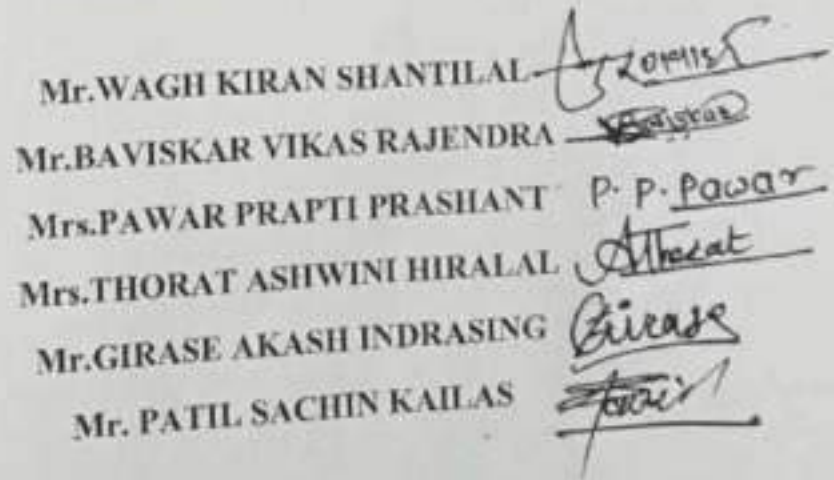 Mr.WAGH KIRAN SHANTILAL
Mr.BAVISKAR VIKAS RAJENDRA Baviskar
Mrs.PAWAR PRAPTI PRASHANT P. P. Pawar
Mrs.THORAT ASHWINI HIRALAL AThorat
Mr.GIRASE AKASH INDRASING Girase
Mr. PATIL SACHIN KAILAS